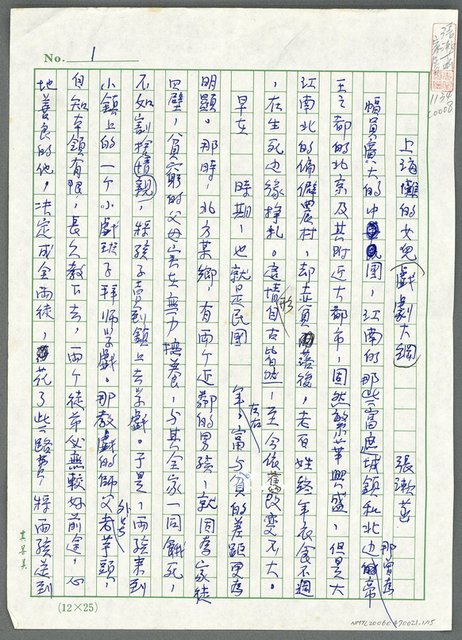 No. 1
上海灘的女兒(戲劇大綱)
張漱菡
幅員廣大的中國,江南的那些富庶城鎮和北边那曾為帝
王之都的北京及其附近大都市,固然繁華興盛,但是大
江南北的偏僻農村,却甚貧落後,老百姓終年衣食不週
,在生死边緣掙札。這情形自古皆然,至今依舊改變不大。
早在 時期,也就是民國 年左右,富与貧的差距更為
明顯。那時,北方某鄉,有兩个近鄰的男孩,就因為家徒
四壁,貧窮的父母实在無力撫養,与其全家一同餓死,
不如割捨親情,將孩子卖到鎮上去学戲。于是,兩孩来到
小鎮上的一个小戲班子拜師学戲。那教戲的師父外号老羊頭,
自知本領有限,長久教下去,兩个徒弟必無較好前途,心
地善良的他,决定成全兩徒,花了些路費,將兩孩送到
(12×25)